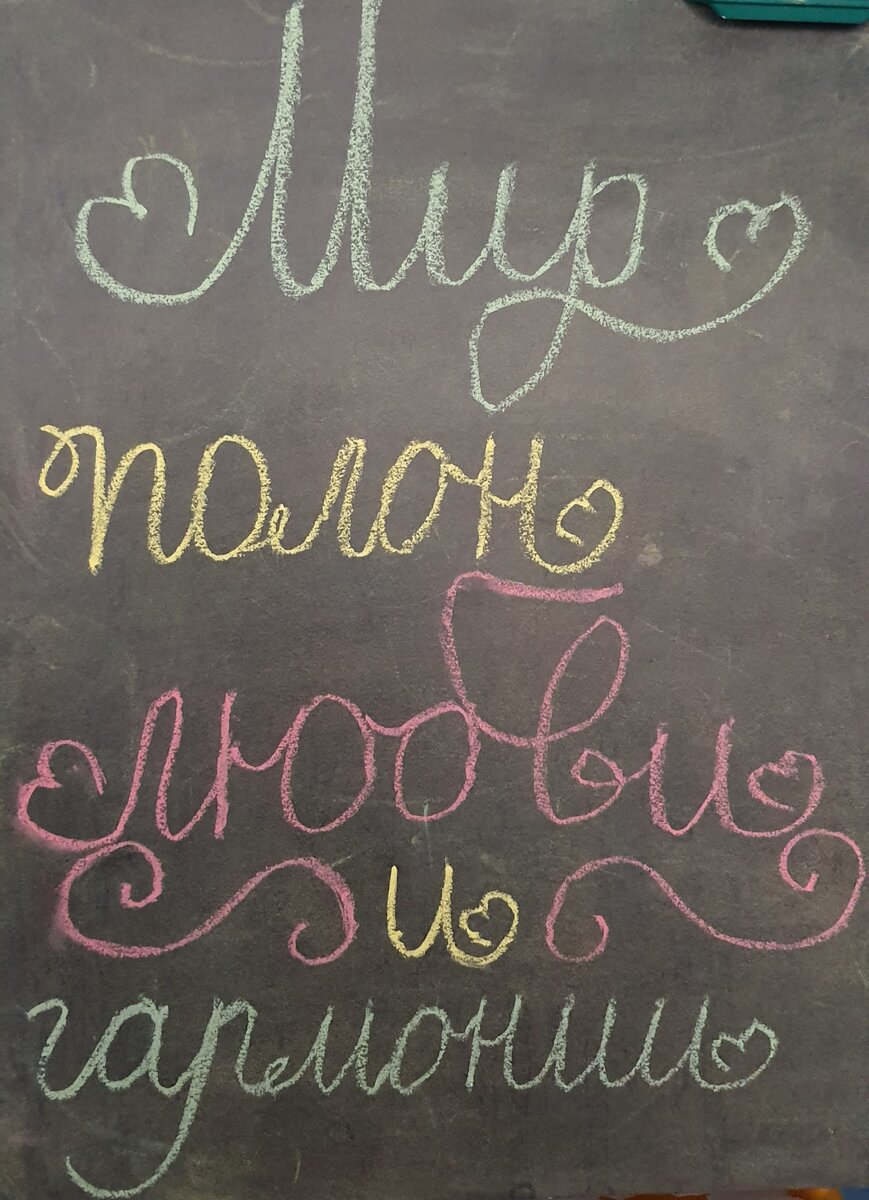 Мир
полон
любви
и
гармонии